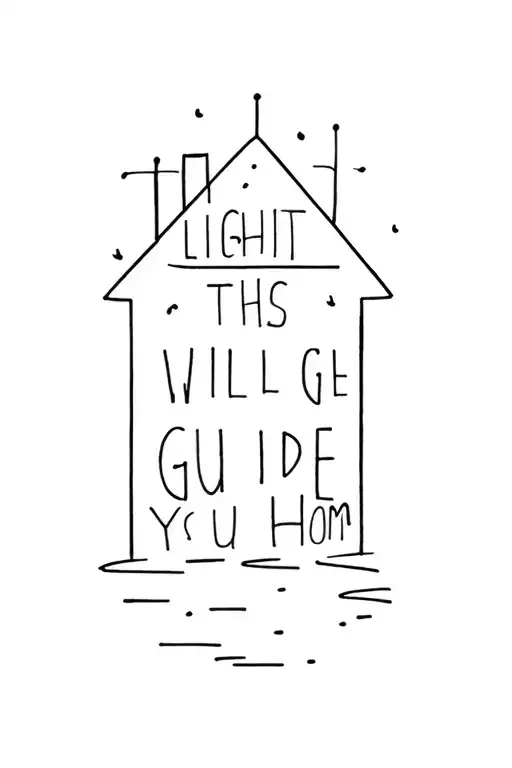 LIGHIT
THS
WILL GE
GUIDE
YCU HOM